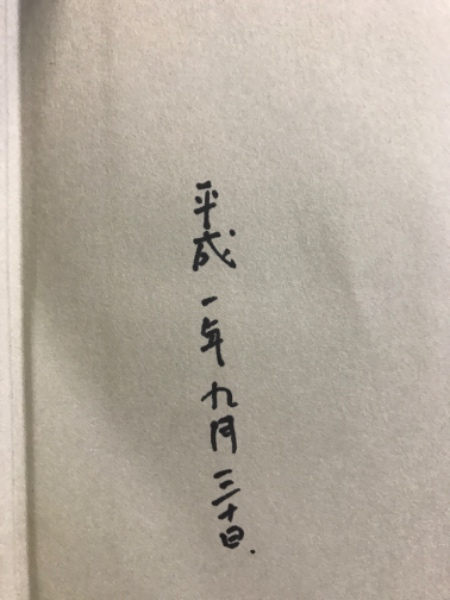 平成一年九月三十日.